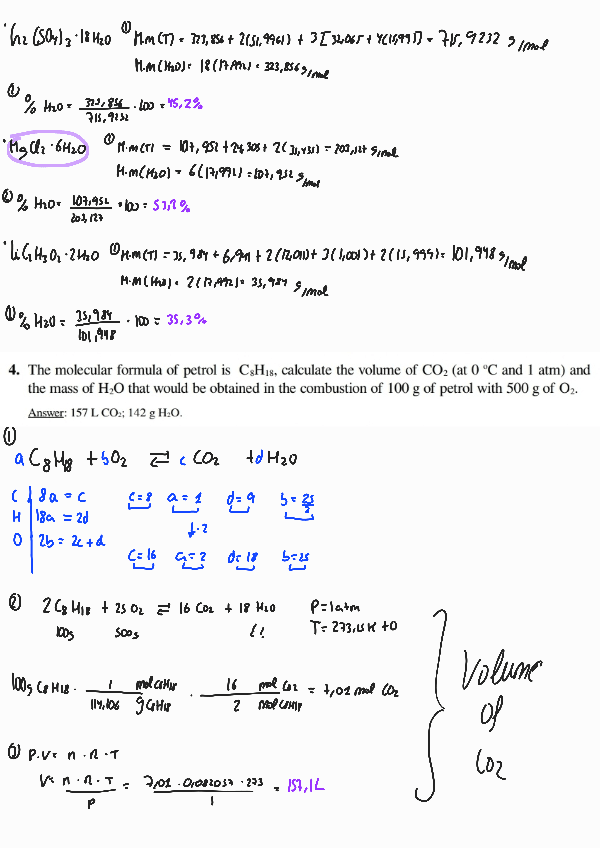 · Cr2(SO4)3 · 18H2O ① M.m(T) = 323,856 + 2(51,9961) + 3[32,065 + 4(15,999)] = 715,9232 g/mol
M.m(H2O) = 18(17,992) = 323,856 g/mol
② % H2O = 323,856 / 715,9232 · 100 = 45,2%
· MgCl2 · 6H2O ① M.m(T) = 107,952 + 24,305 + 2(35,435) = 203,127 g/mol
M.m(H2O) = 6(17,992) = 107,952 g/mol
② % H2O = 107,952 / 203,127 · 100 = 53,1%
· LiC2H3O2 · 2H2O ① M.m(T) = 35,984 + 6,941 + 2(12,011) + 3(1,001) + 2(15,999) = 101,948 g/mol
M.m(H2O) = 2(17,992) = 35,984 g/mol
② % H2O = 35,984 / 101,948 · 100 = 35,3%
4. The molecular formula of petrol is C8H18, calculate the volume of CO2 (at 0 ºC and 1 atm) and
the mass of H2O that would be obtained in the combustion of 100 g of petrol with 500 g of O2.
Answer: 157 L CO2; 142 g H2O.
①
a C8H18 + b O2 ⇄ c CO2 + d H2O
C 8a = c c=8 a=1 d=9 b=25/2
H 18a = 2d ↓·2
O 2b = 2c+d c=16 a=2 d=18 b=25
② 2 C8H18 + 25 O2 ⇄ 16 CO2 + 18 H2O P=1atm
100g 500g T=273,15K + 0
100g C8H18 · 1 mol C8H18 / 114,106 g C8H18 · 16 mol CO2 / 2 mol C8H18 = 7,01 mol CO2
③ P·V= n · R · T
V= n · R · T / P = 7,01 · 0,082057 · 273 / 1 = 157,1L
Volume
of
CO2